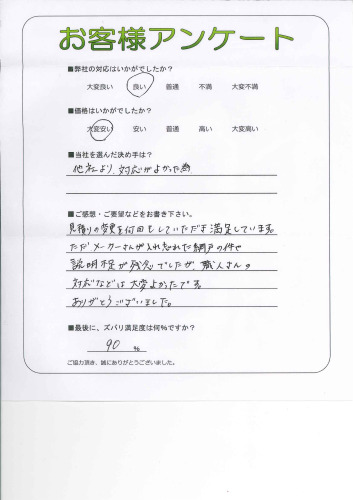 お客様アンケート
■弊社の対応はいかがでしたか？
大変良い 良い 普通 不満 大変不満
■価格はいかがでしたか？
大変安い 安い 普通 高い 大変高い
■当社を選んだ決め手は？
他社より、対応がよかった為
■ご感想・ご要望などをお書き下さい。
見積りの変更を何回もしていただき満足しています。
ただメーカーさんが入れ忘れた網戸の件や
説明不足が残念でしたが、職人さんの
対応などは大変よかったです
ありがとうございました。
■最後に、ズバリ満足度は何%ですか？
90 %
ご協力頂き、誠にありがとうございました。